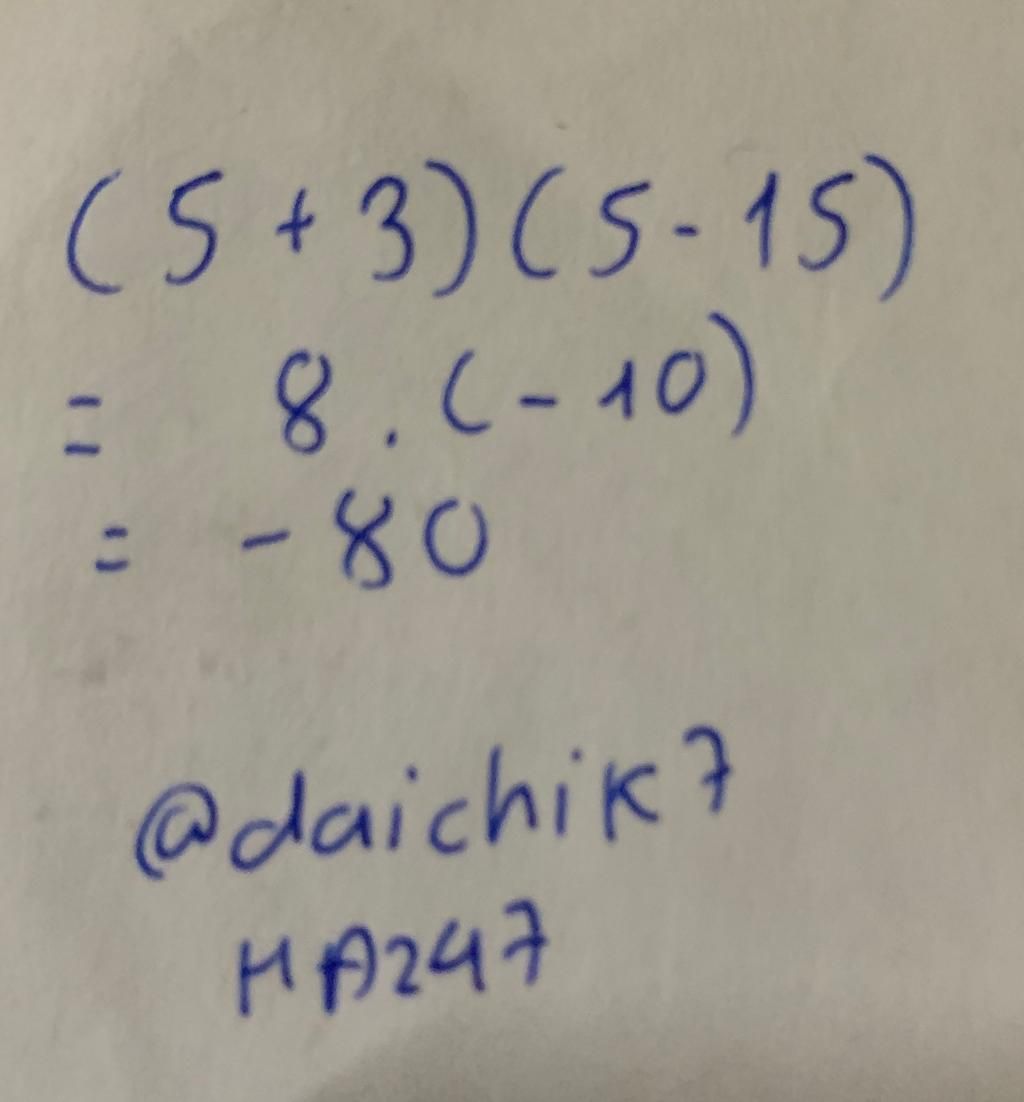 (5+3)(5-15)
= 8.(-10)
= -80
@daichik7
HA247